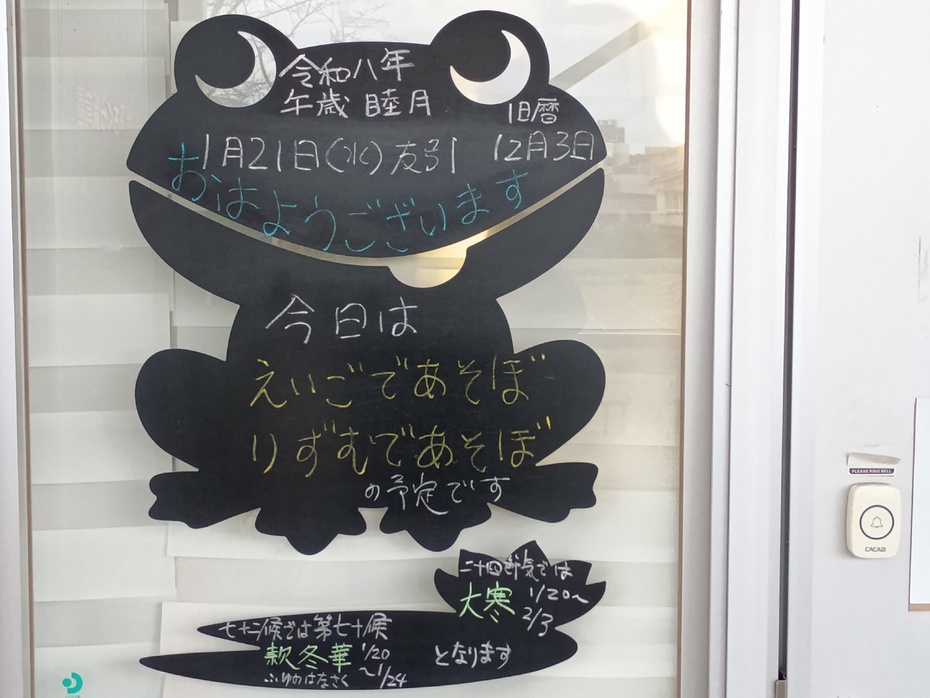 令和八年
午歳 睦月
旧暦
1月21日(水)友引 12月3日
おはようございます
今日は
えいごであそぼ
りずむであそぼ
の予定です
二十四節気では
大寒 1/20~
2/3
七十二候では第七十候
款冬華 1/20
~1/24
ふゆのはなさく
となります
PLEASE RING BELL
CACAZI